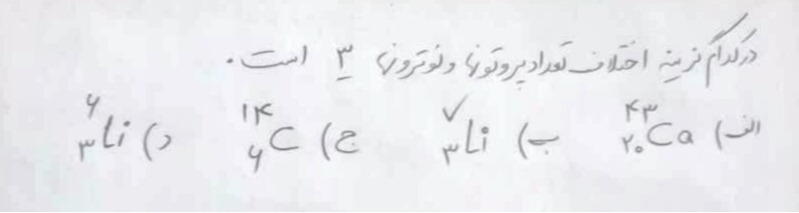 در کدام گزینه اختلاف تعداد پروتونها و نوترونها ۳ است.
الف) ⁴³₂₀Ca ب) ⁷₃Li ج) ¹⁴₆C د) ⁶₃Li